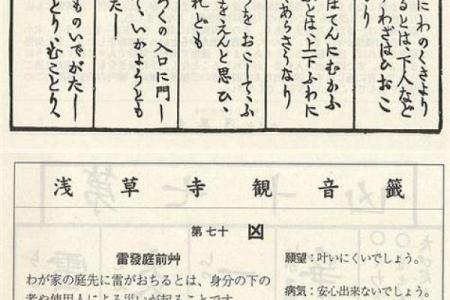 にわのくさより
るとは、下人など
わざはひおこ
り
はてんにむかふ
どは上下ふわに
あらさうなり
を おこしてふ
をえんと思ひ、
れども
くの入口に門
く、いかようとも
たし
ものいでがたし
とり、むことり、
浅草寺観音籤
第七十 凶
雷發庭前艸
わが家の庭先に雷がおちるとは、身分の下の
者や使用人による災いが起ることです
願望：叶いにくいでしょう。
病気：安心出来ないでしょう。